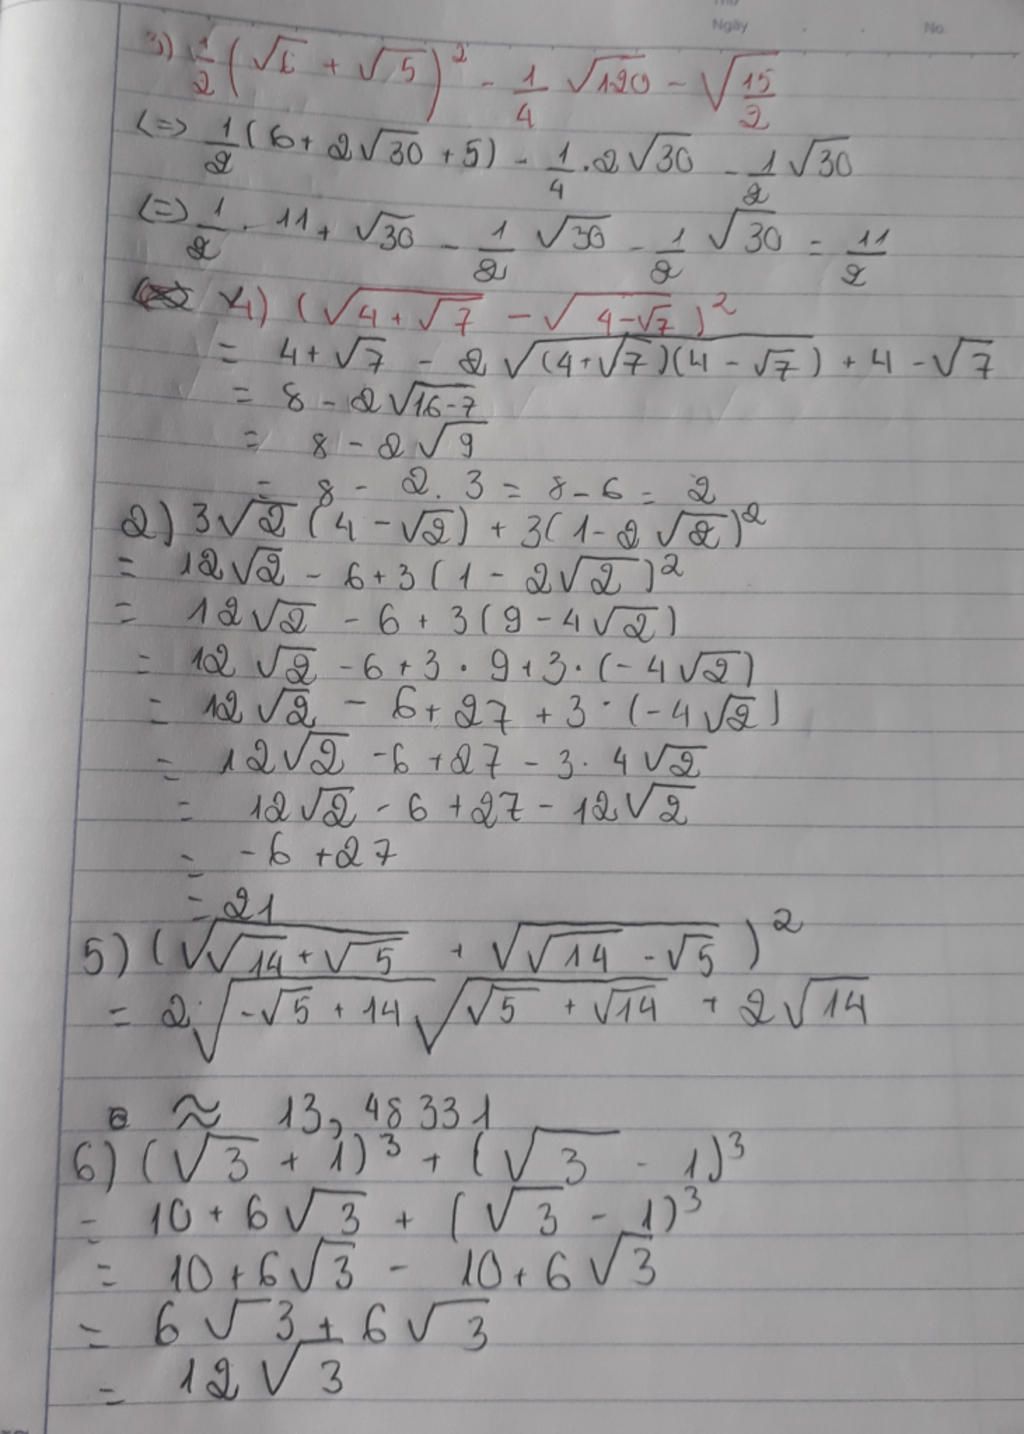 Ngày
No.
3) 1/2 (√6 + √5)² - 1/4 √120 - √(15/2)
(=> 1/2 (6 + 2√30 + 5) - 1/4 . 2√30 - 1/2 √30
(=> 1/2 . 11 + √30 - 1/2 √30 - 1/2 √30 = 11/2
4) (√(4+√7) - √(4-√7))²
= 4+√7 - 2√((4+√7)(4-√7)) + 4 - √7
= 8 - 2√(16-7)
= 8 - 2√9
= 8 - 2. 3 = 8 - 6 = 2
2) 3√2 (4 - √2) + 3(1 - 2√2)²
= 12√2 - 6 + 3(1 - 2√2)²
= 12√2 - 6 + 3(9 - 4√2)
= 12√2 - 6 + 3 . 9 + 3 . (-4√2)
= 12√2 - 6 + 27 + 3 . (-4√2)
= 12√2 - 6 + 27 - 3. 4√2
= 12√2 - 6 + 27 - 12√2
= -6 + 27
= 21
5) (√(√14 + √5) + √(√14 - √5))²
= 2.√(-√5 + 14) √(√5 + √14) + 2√14
≈ 13,48331
6) (√3 + 1)³ + (√3 - 1)³
= 10 + 6√3 + (√3 - 1)³
= 10 + 6√3 - 10 + 6√3
= 6√3 + 6√3
= 12√3